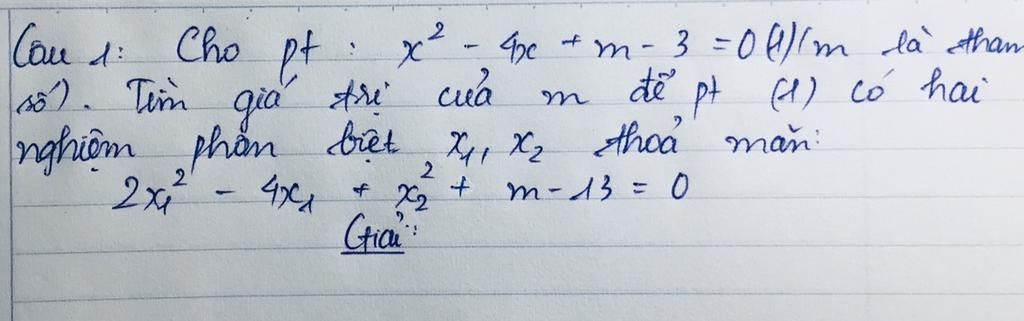 Câu 1: Cho pt : x² - 4x + m - 3 = 0 (1) (m là tham
số). Tìm giá trị của m để pt (1) có hai
nghiệm phân biệt x₁, x₂ thoả mãn:
2x₁² - 4x₁ + x₂² + m - 13 = 0
Giải: